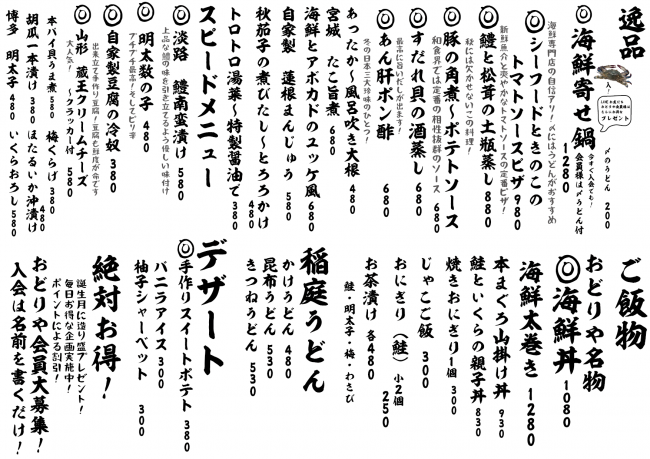 逸品
◎海鮮寄せ鍋
1280
今すぐ入会でも!
会員様は〆うどん付
〆のうどん 200
プレゼント
海鮮専門店の自信アリ!〆にはうどんがおすすめ
◎シーフードときのこの
トマトソースピザ 980
新鮮魚介と爽やかなトマトソースの定番ピザ!
◎鱧と松茸の土瓶蒸し 880
秋には欠かせないこの料理!
◎豚の角煮〜ポテトソース 680
和食界では定番の相性抜群のソース
◎すだれ貝の酒蒸し 680
最高に旨いだしが出ます!
◎あん肝ポン酢 680
冬の日本三大珍味のひとつ!
あったか〜風呂吹き大根 480
宮城 たこ旨煮 680
海鮮とアボカドのユッケ風 680
自家製 蓮根まんじゅう 580
秋茄子の煮びたし〜とろろかけ 480
トロトロ湯葉〜特製醤油で 380
スピードメニュー
◎淡路 鱧南蛮漬け 580
上品な鱧の味を引き立てるよう優しい味付け
◎明太数の子 480
プチプチ最高!そしてピリ辛
◎自家製豆腐の冷奴 380
出来立て手作り豆腐!豆腐も鮮度が命です
◎山形 蔵王クリームチーズ
〜クラッカー付 580
大人気!
本バイ貝うま煮 580 梅くらげ 380
胡瓜一本漬け 380 ほたるいか沖漬け 480
博多 明太子 480 いくらおろし 580
ご飯物
おどりや名物
◎海鮮丼 1080
海鮮太巻き 1280
本まぐろ山掛け丼 930
鮭といくらの親子丼 830
焼きおにぎり1個 300
じゃこご飯 300
おにぎり(鮭)小2個 250
お茶漬け 各480
鮭・明太子・梅・わさび
稲庭うどん
かけうどん 480
昆布うどん 530
きつねうどん 530
デザート
◎手作りスイートポテト 380
バニラアイス 300
柚子シャーベット 300
絶対お得!
誕生月に造り盛プレゼント!
毎日お得な企画実施中!
ポイントによる割引!
おどりや会員大募集!
入会は名前を書くだけ!